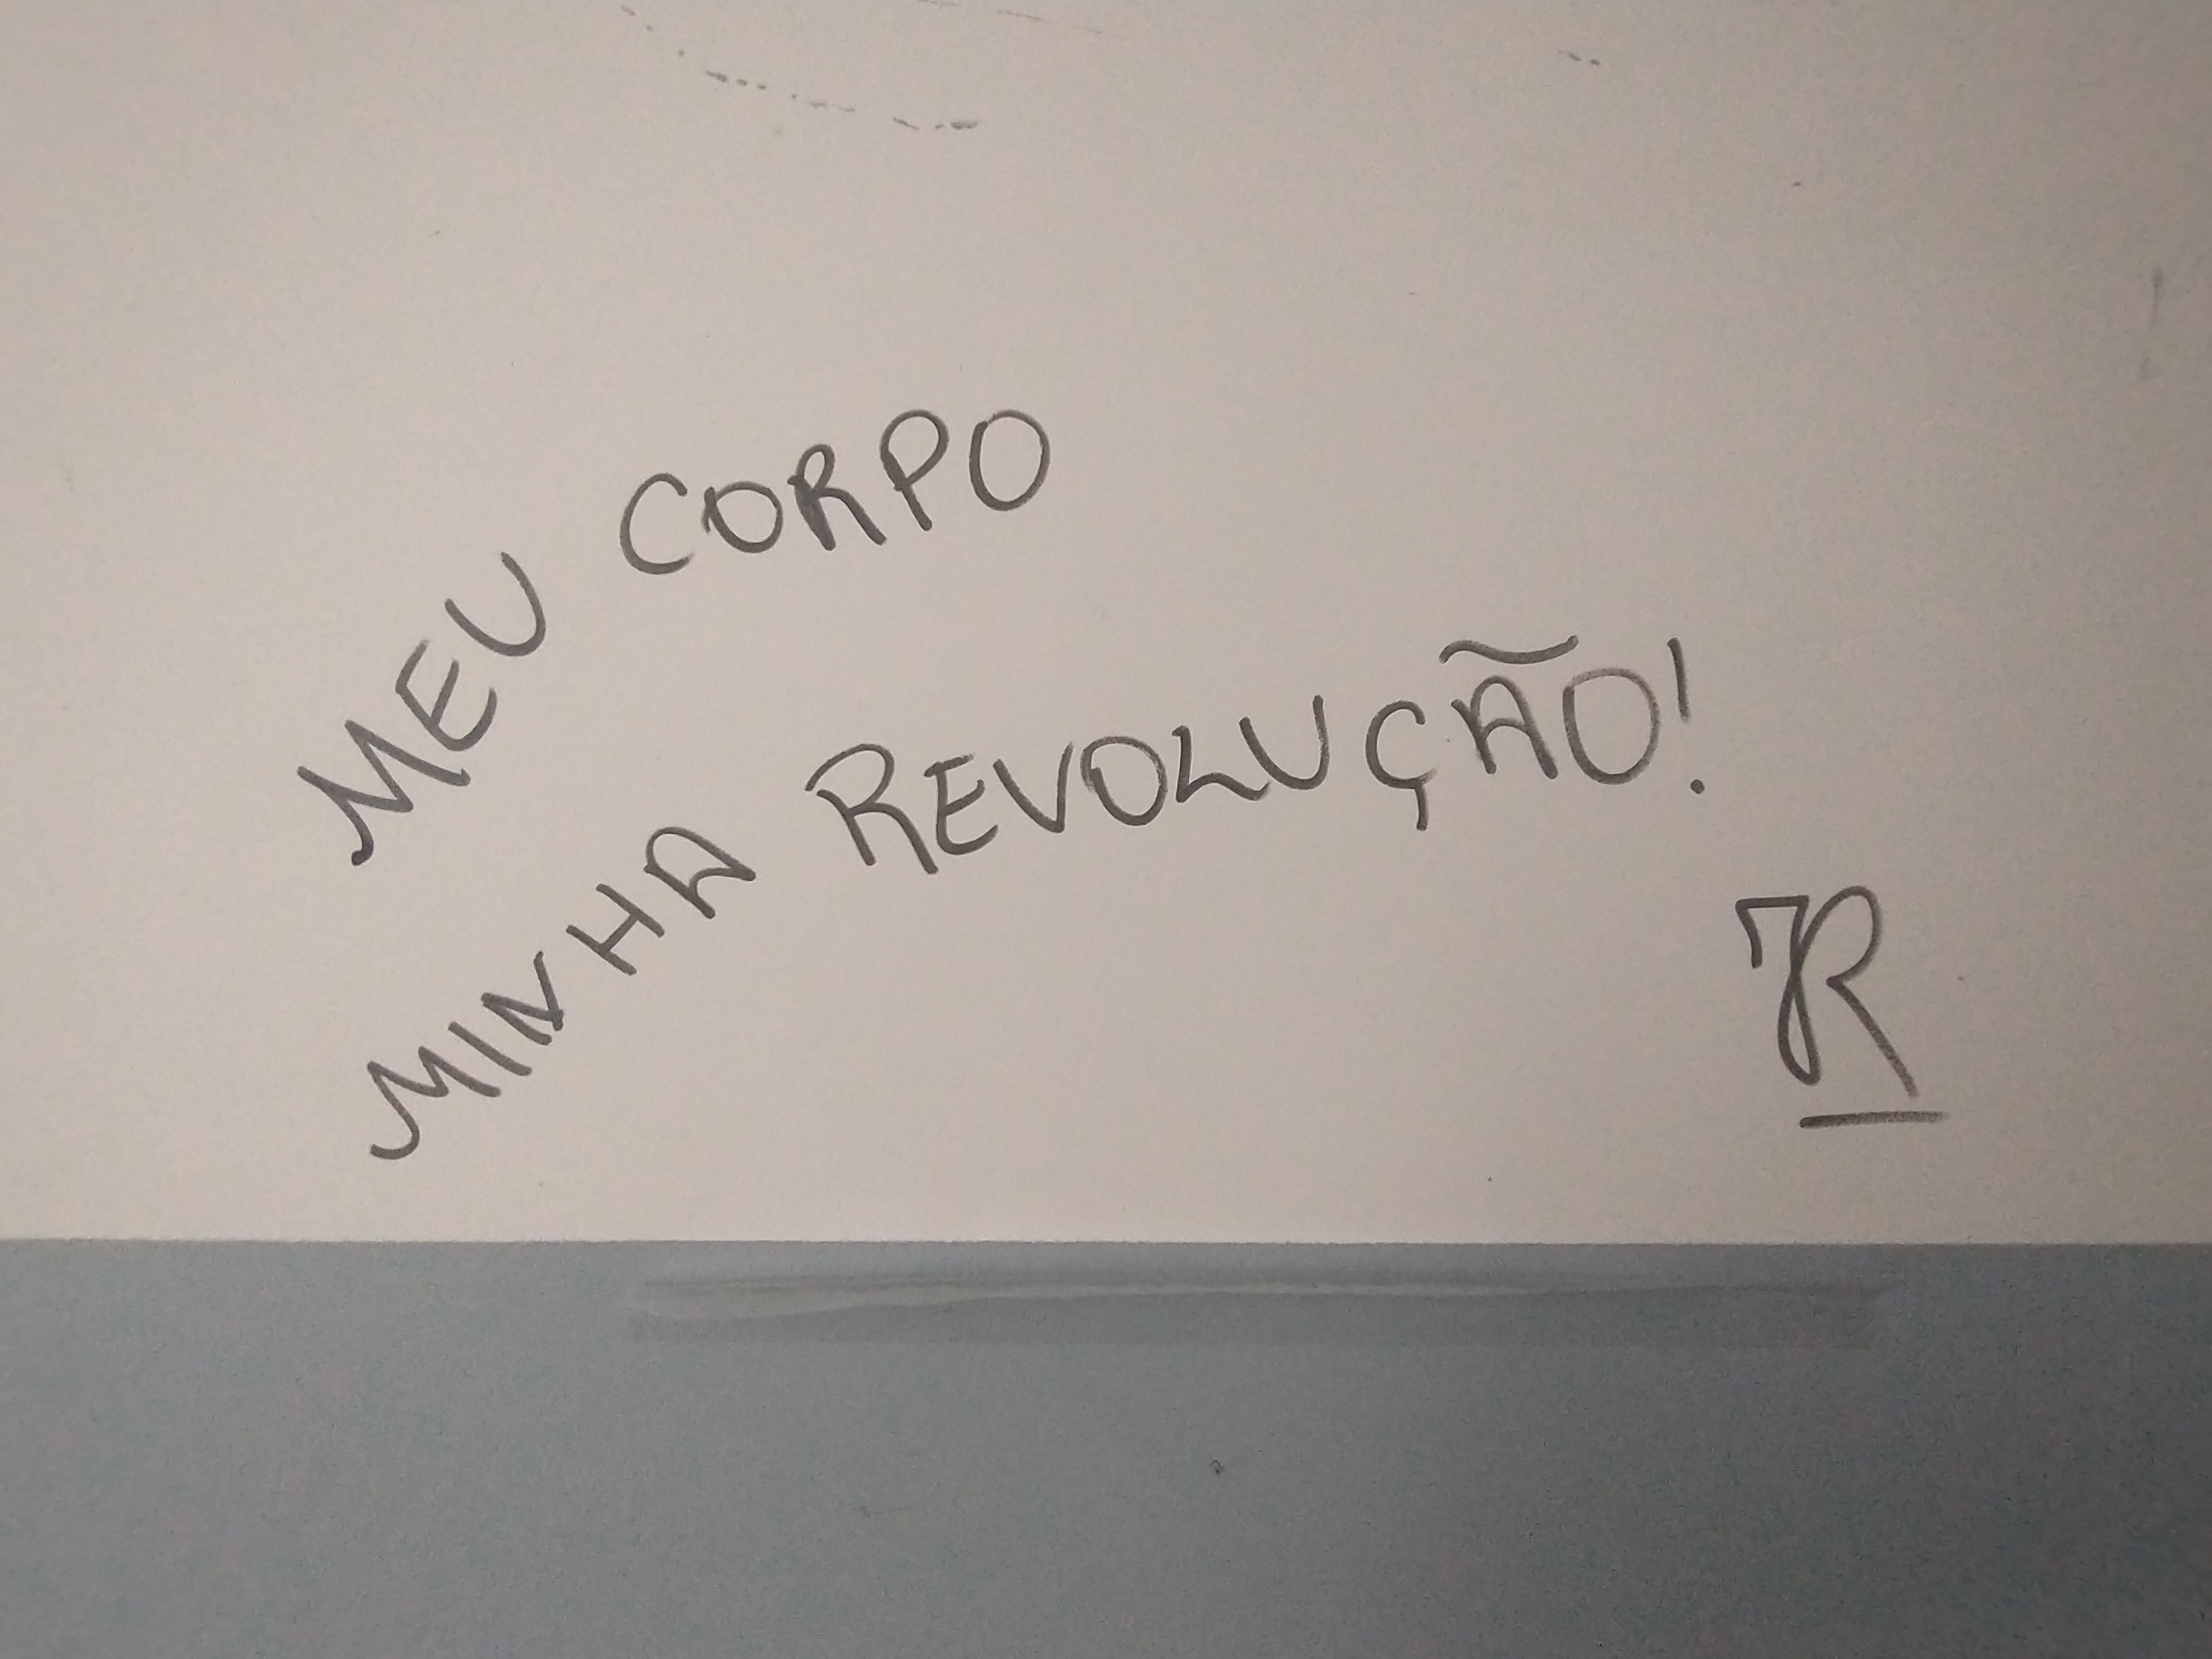 MEU CORPO
MINHA REVOLUÇÃO!
R